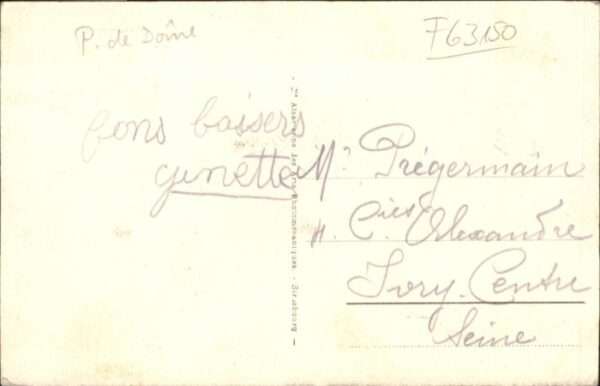 P. de Dôme
F63150
bons baisers
ginette
Mr Prégermain
Alexandre
Ivry-Centre
Seine
Strasbourg